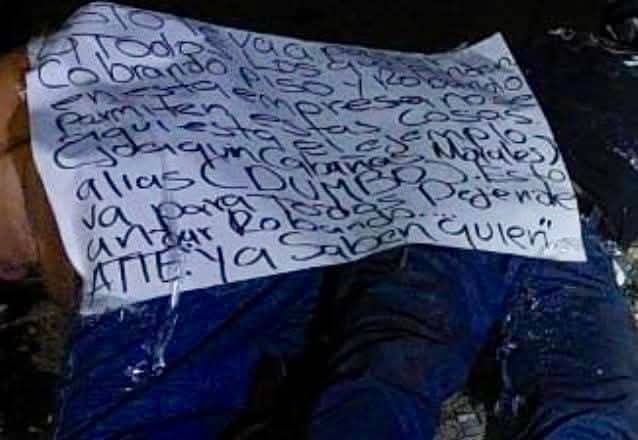 ESTO le
A Todos va a
Cobrando Piso y Robando
en esta empresa no se
Permiten estas cosas
aqui esta el ejemplo
(Joaquin Cabañas Morales)
alias (DUMBO). Esto
va para Todos Dejen de
andar Robando...
ATTE: Ya Saben quien"